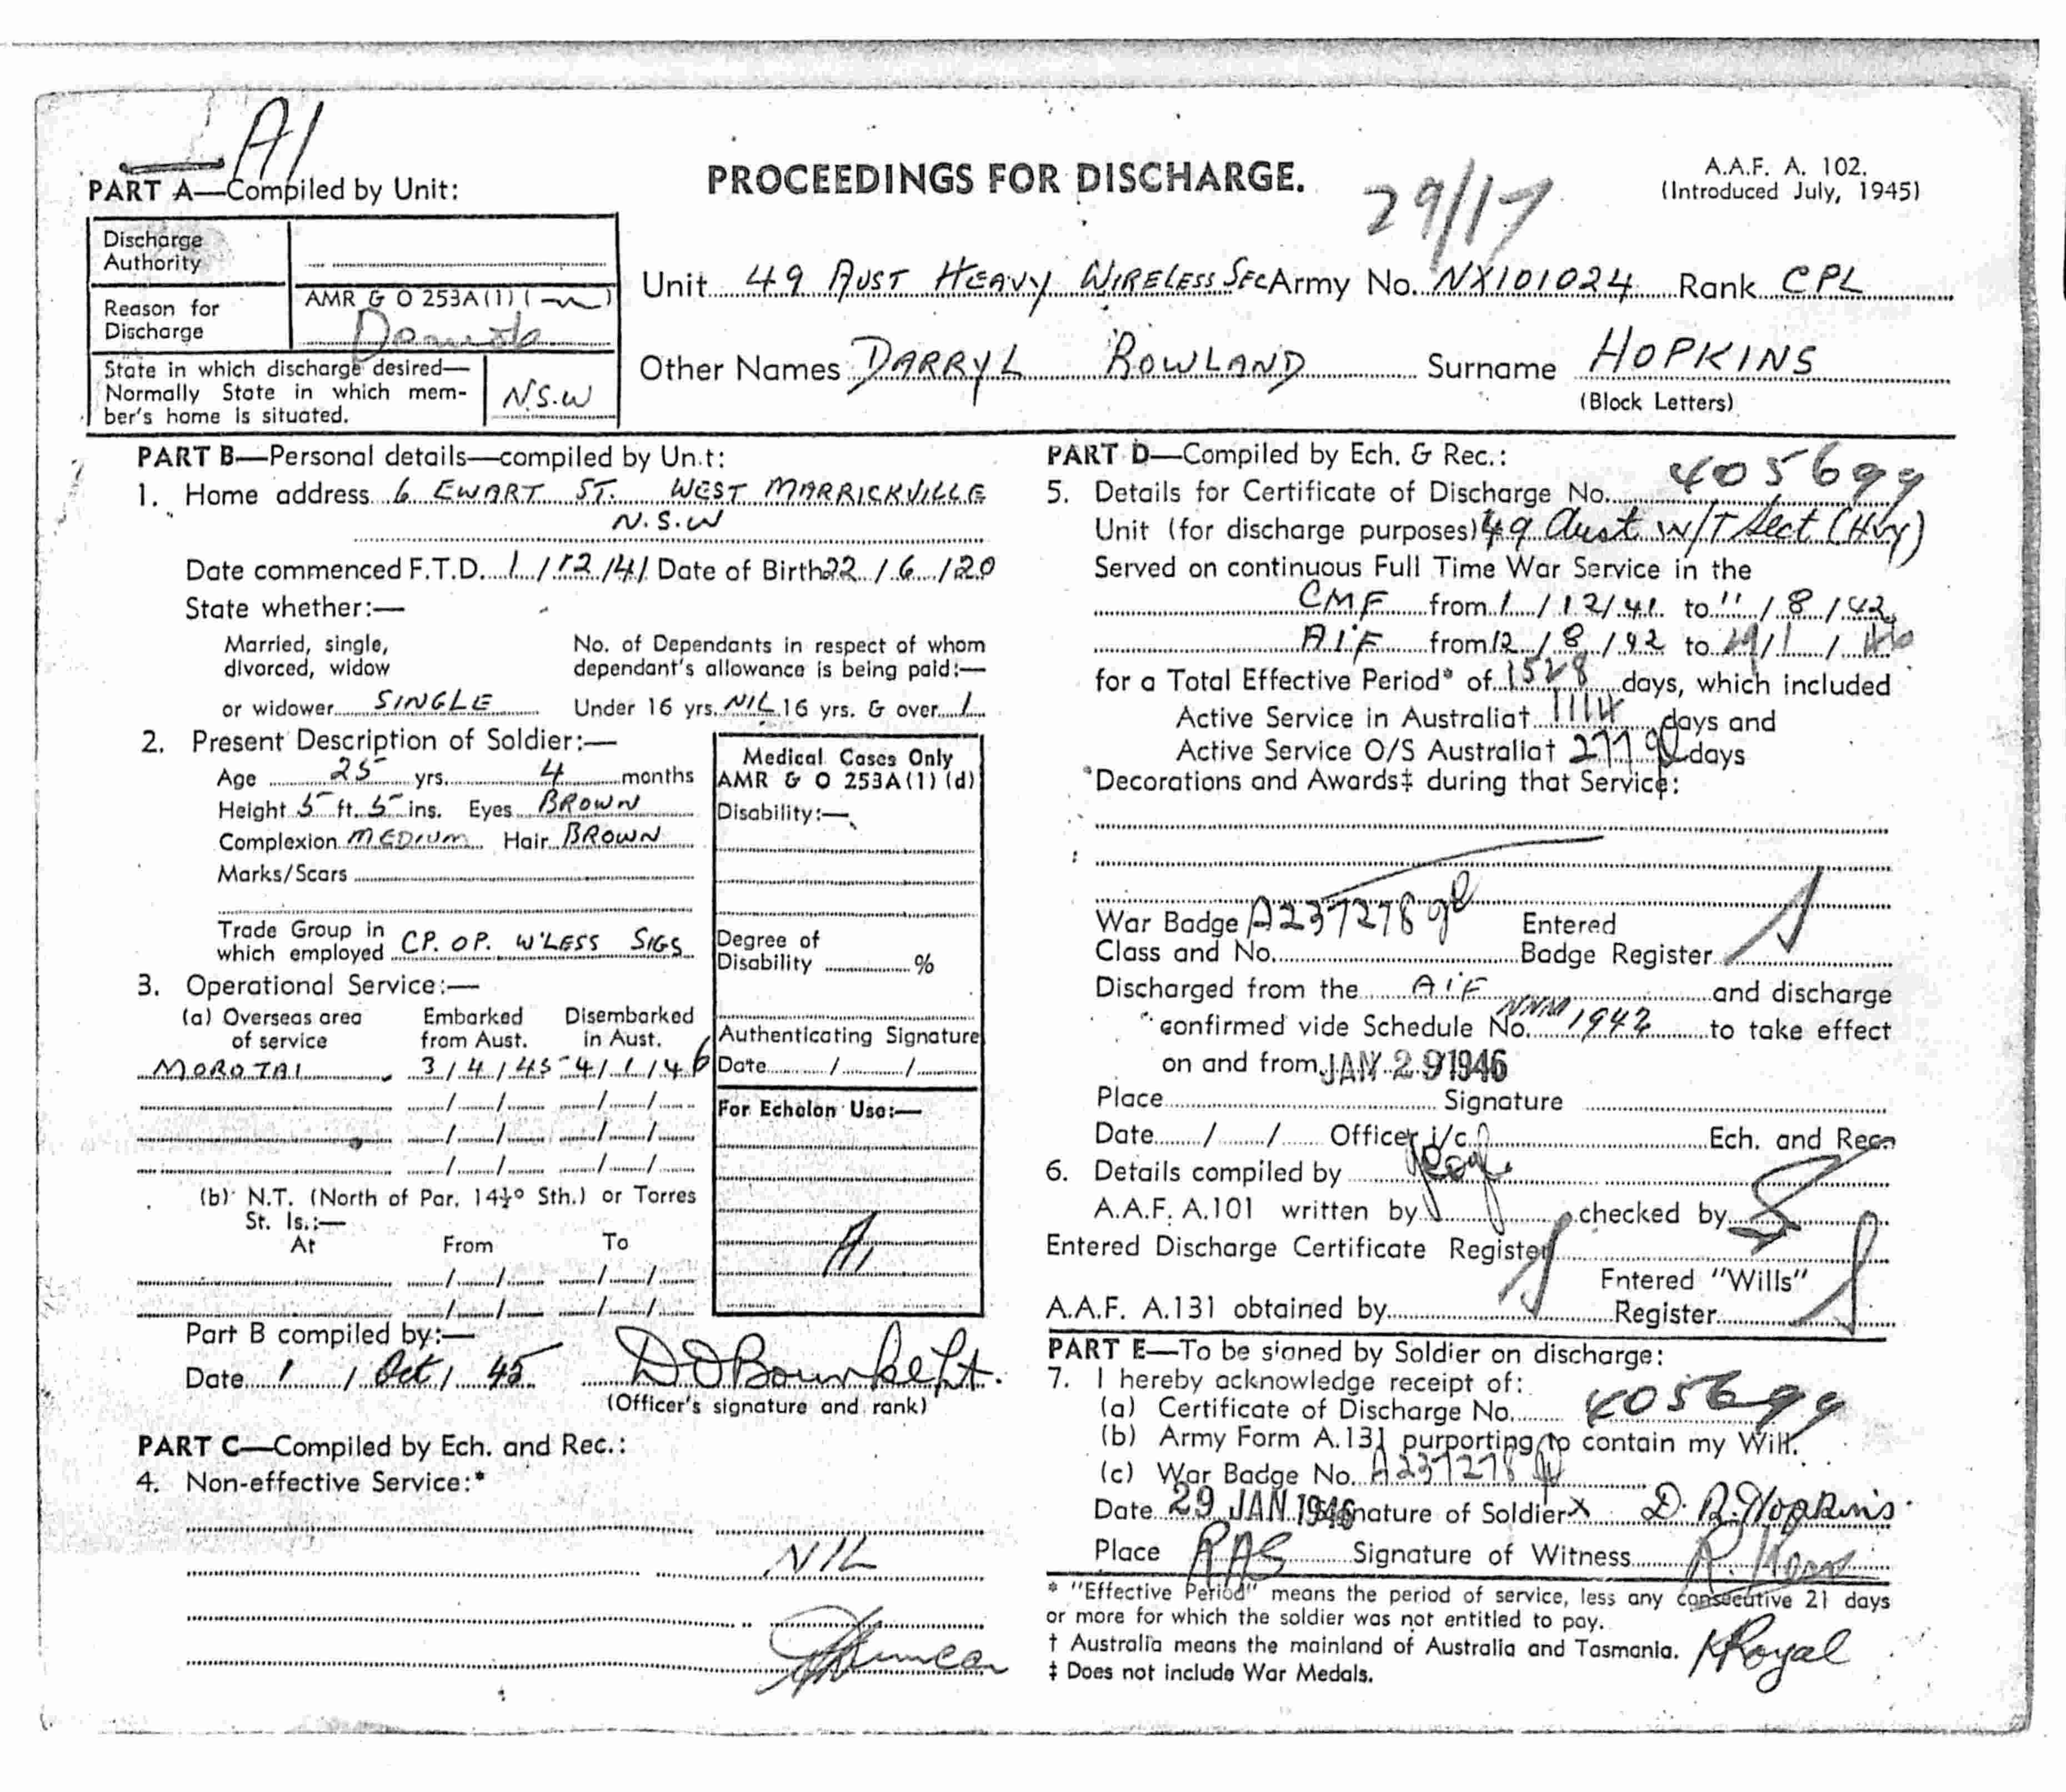 A1
PART A—Compiled by Unit:
PROCEEDINGS FOR DISCHARGE.
29/17
A.A.F. A. 102.
(Introduced July, 1945)
Discharge
Authority
Reason for
Discharge
AMR & O 253A(1) ( )
Demob
State in which discharge desired—
Normally State in which mem-
ber's home is situated.
N.S.W
Unit 49 AUST HEAVY WIRELESS SEC Army No. NX101024 Rank CPL
Other Names DARRYL ROWLAND Surname HOPKINS
(Block Letters)
PART B—Personal details—compiled by Un.t:
1. Home address 6 EWART ST. WEST MARRICKVILLE
N.S.W
Date commenced F.T.D. 1/12/41 Date of Birth 22/6/20
State whether:—
Married, single,
divorced, widow
or widower SINGLE
No. of Dependants in respect of whom
dependant's allowance is being paid:—
Under 16 yrs. NIL 16 yrs. & over 1
2. Present Description of Soldier:—
Age 25 yrs. 4 months
Height 5 ft. 5 ins. Eyes BROWN
Complexion MEDIUM Hair BROWN
Marks/Scars
Trade Group in
which employed CP. OP. W'LESS SIGS
Medical Cases Only
AMR & O 253A(1)(d)
Disability:—
Degree of
Disability %
Authenticating Signature
Date / /
For Echelon Use:—
A1
3. Operational Service:—
(a) Overseas area
of service
Embarked
from Aust.
Disembarked
in Aust.
MOROTAI 3/4/45 4/1/46
(b) N.T. (North of Par. 14½° Sth.) or Torres
St. Is.:—
At From To
Part B compiled by:—
Date 1 / Oct / 45 DOBourke Lt.
(Officer's signature and rank)
PART C—Compiled by Ech. and Rec.:
4. Non-effective Service:*
NIL
PART D—Compiled by Ech. & Rec.:
5. Details for Certificate of Discharge No. 405699
Unit (for discharge purposes) 49 Aust W/T Sect (Hvy)
Served on continuous Full Time War Service in the
CMF from 1/12/41 to 11/8/42
AIF from 12/8/42 to 29/1/46
for a Total Effective Period* of 1528 days, which included
Active Service in Australia† 1114 days and
Active Service O/S Australia† 277 days
*Decorations and Awards‡ during that Service:
War Badge A237278
Class and No.
Entered
Badge Register
Discharged from the AIF and discharge
confirmed vide Schedule No. 1942 to take effect
on and from JAN 29 1946
Place Signature
Date / / Officer i/c Ech. and Rec.
6. Details compiled by
A.A.F. A.101 written by checked by
Entered Discharge Certificate Register
Entered "Wills"
A.A.F. A.131 obtained by Register
PART E—To be signed by Soldier on discharge:
7. I hereby acknowledge receipt of:
(a) Certificate of Discharge No. 405699
(b) Army Form A.131 purporting to contain my Will.
(c) War Badge No. A237278
Date 29 JAN 1946 Signature of Soldier X D. R. Hopkins.
Place RAS Signature of Witness
* "Effective Period" means the period of service, less any consecutive 21 days
or more for which the soldier was not entitled to pay.
† Australia means the mainland of Australia and Tasmania.
‡ Does not include War Medals.
KRoyal